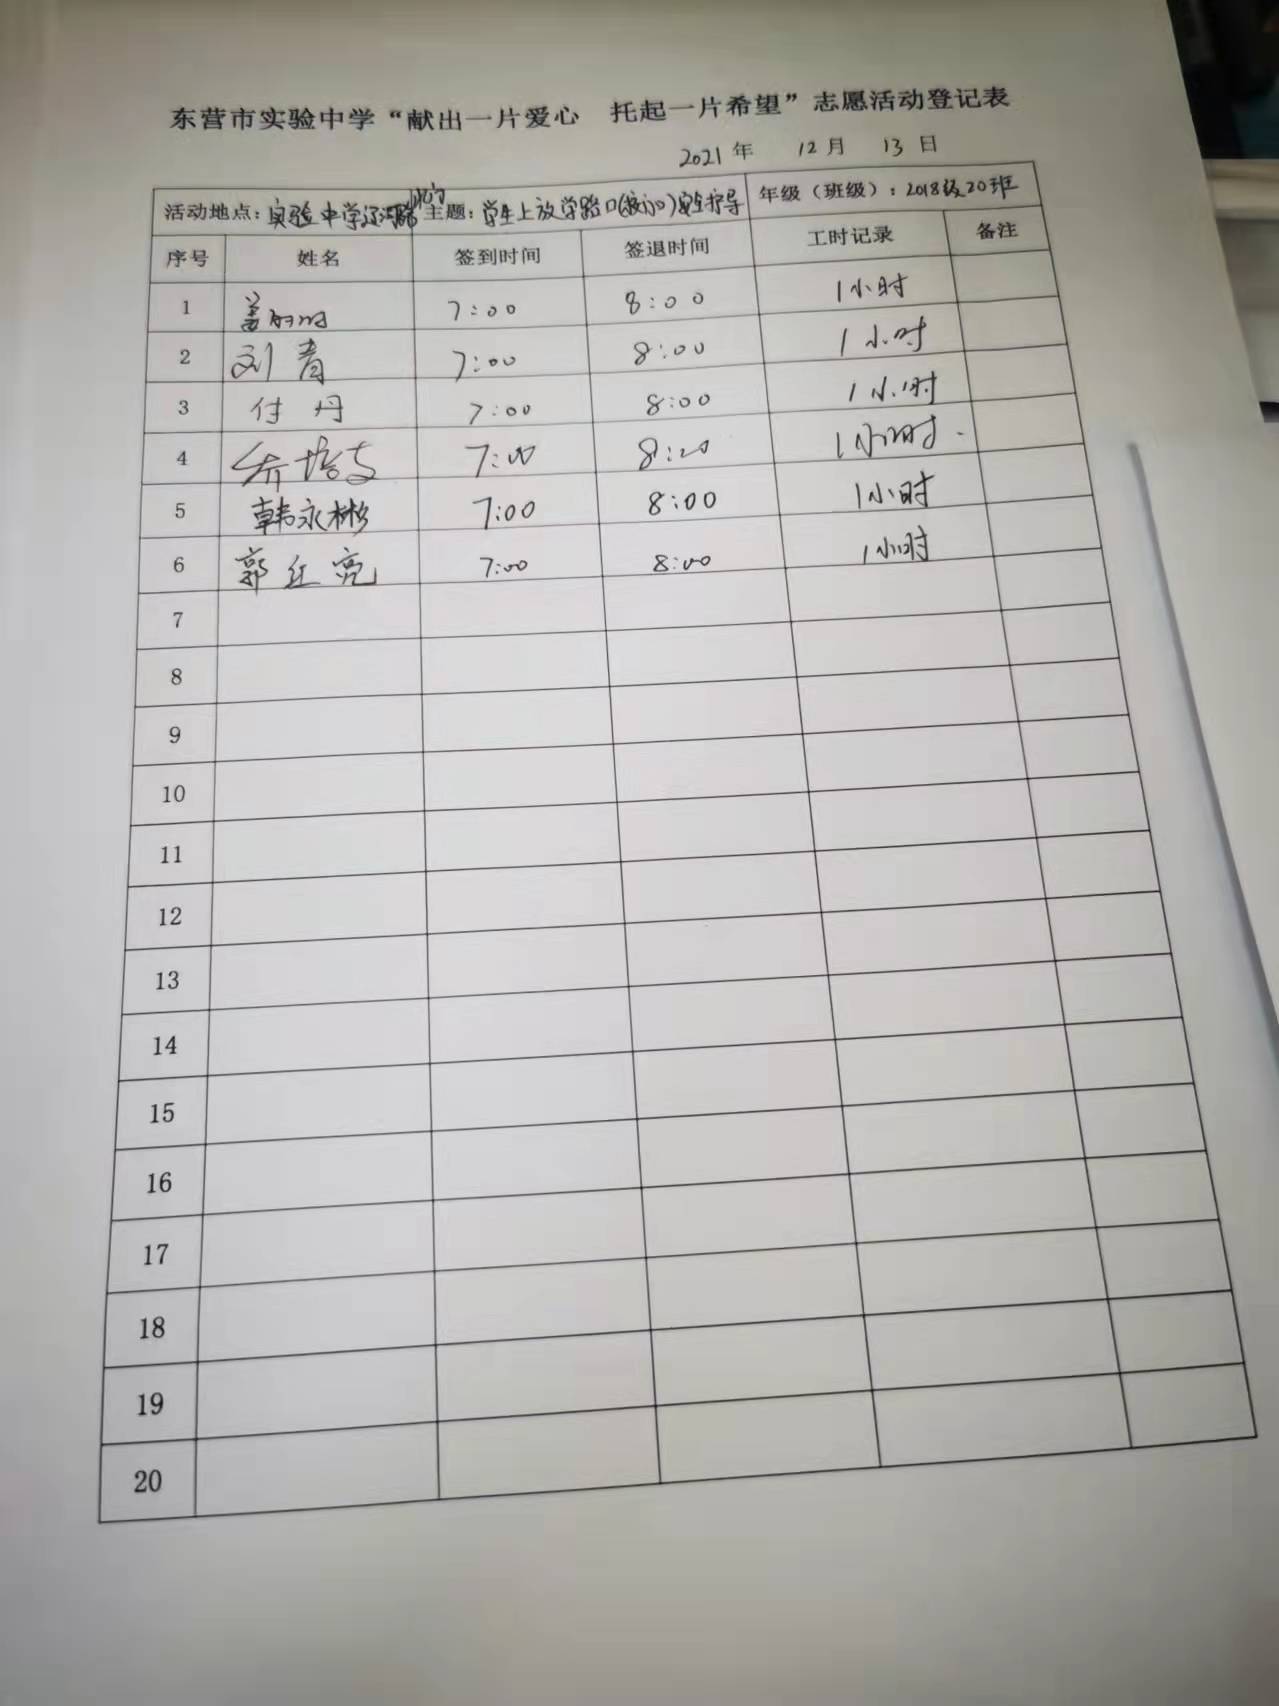 东营市实验中学“献出一片爱心 托起一片希望”志愿活动登记表
2021年 12月 13日
活动地点：实验中学辽河路 主题：学生上放学路口(校门口)安全护导 年级（班级）：2018级20班
序号 姓名 签到时间 签退时间 工时记录 备注
1 7:00 8:00 1小时
2 刘青 7:00 8:00 1小时
3 付丹 7:00 8:00 1小时
4 7:00 8:00 1小时.
5 韩永彬 7:00 8:00 1小时
6 郭红亮 7:00 8:00 1小时
7
8
9
10
11
12
13
14
15
16
17
18
19
20